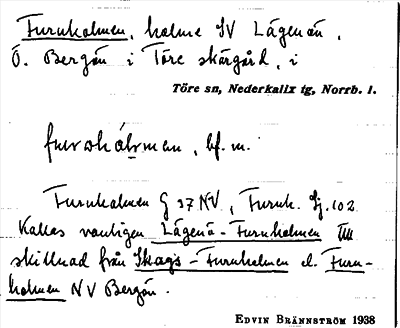 Furuholmen, holme SV Lägenön,
Ö. Bergön i Töre skärgård, i
Töre sn, Nederkalix tg, Norrb. l.
bf. m.
Furuholmen G 37 NV, Furuh. Sj. 102
Kallas vanligen Lägenö-Furuholmen till
skillnad från Skags-Furuholmen el. Furu-
holmen NV Bergön.
EDVIN BRÄNNSTRÖM 1938